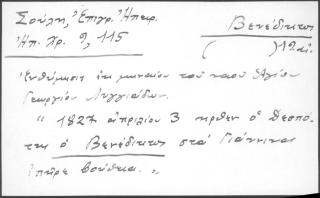 Σούλη, Ἐπιγρ. Ἠπείρ.
Ἠπ. Χρ. 9, 115
Βενέδικτος
( ) 19 αἰ.
Ἐνθύμησις ἐκ μηναίου τοῦ ναοῦ Ἁγίου
Γεωργίου Λυγγιάδων.
" 1827 ἀπριλίου 3 ἠρθεν ὁ Δεσπό-
της ὁ Βενέδικτος στά Γιάννινα
βούθεια. "